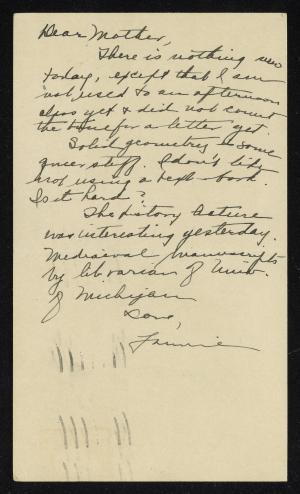 Dear Mother,
There is nothing new
today, except that I am
not used to an afternoon
class yet & did not count
the time for a letter yet.
Solid geometry is some
queer stuff. I don't like
not using a text-book.
Is it hard?
The history lecture
was interesting yesterday.
Mediaeval manuscripts
by librarian of Univ.
of Michigan
Love,
Fannie